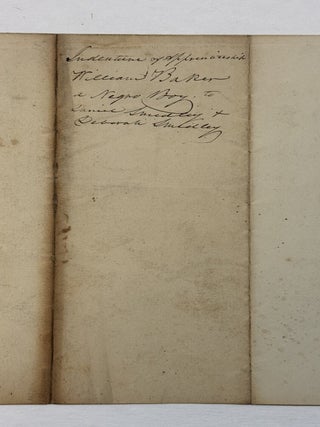 Indenture of Apprenticeship
William Baker
a Negro Boy to
Daniel Smedley &
Deborah Smedley